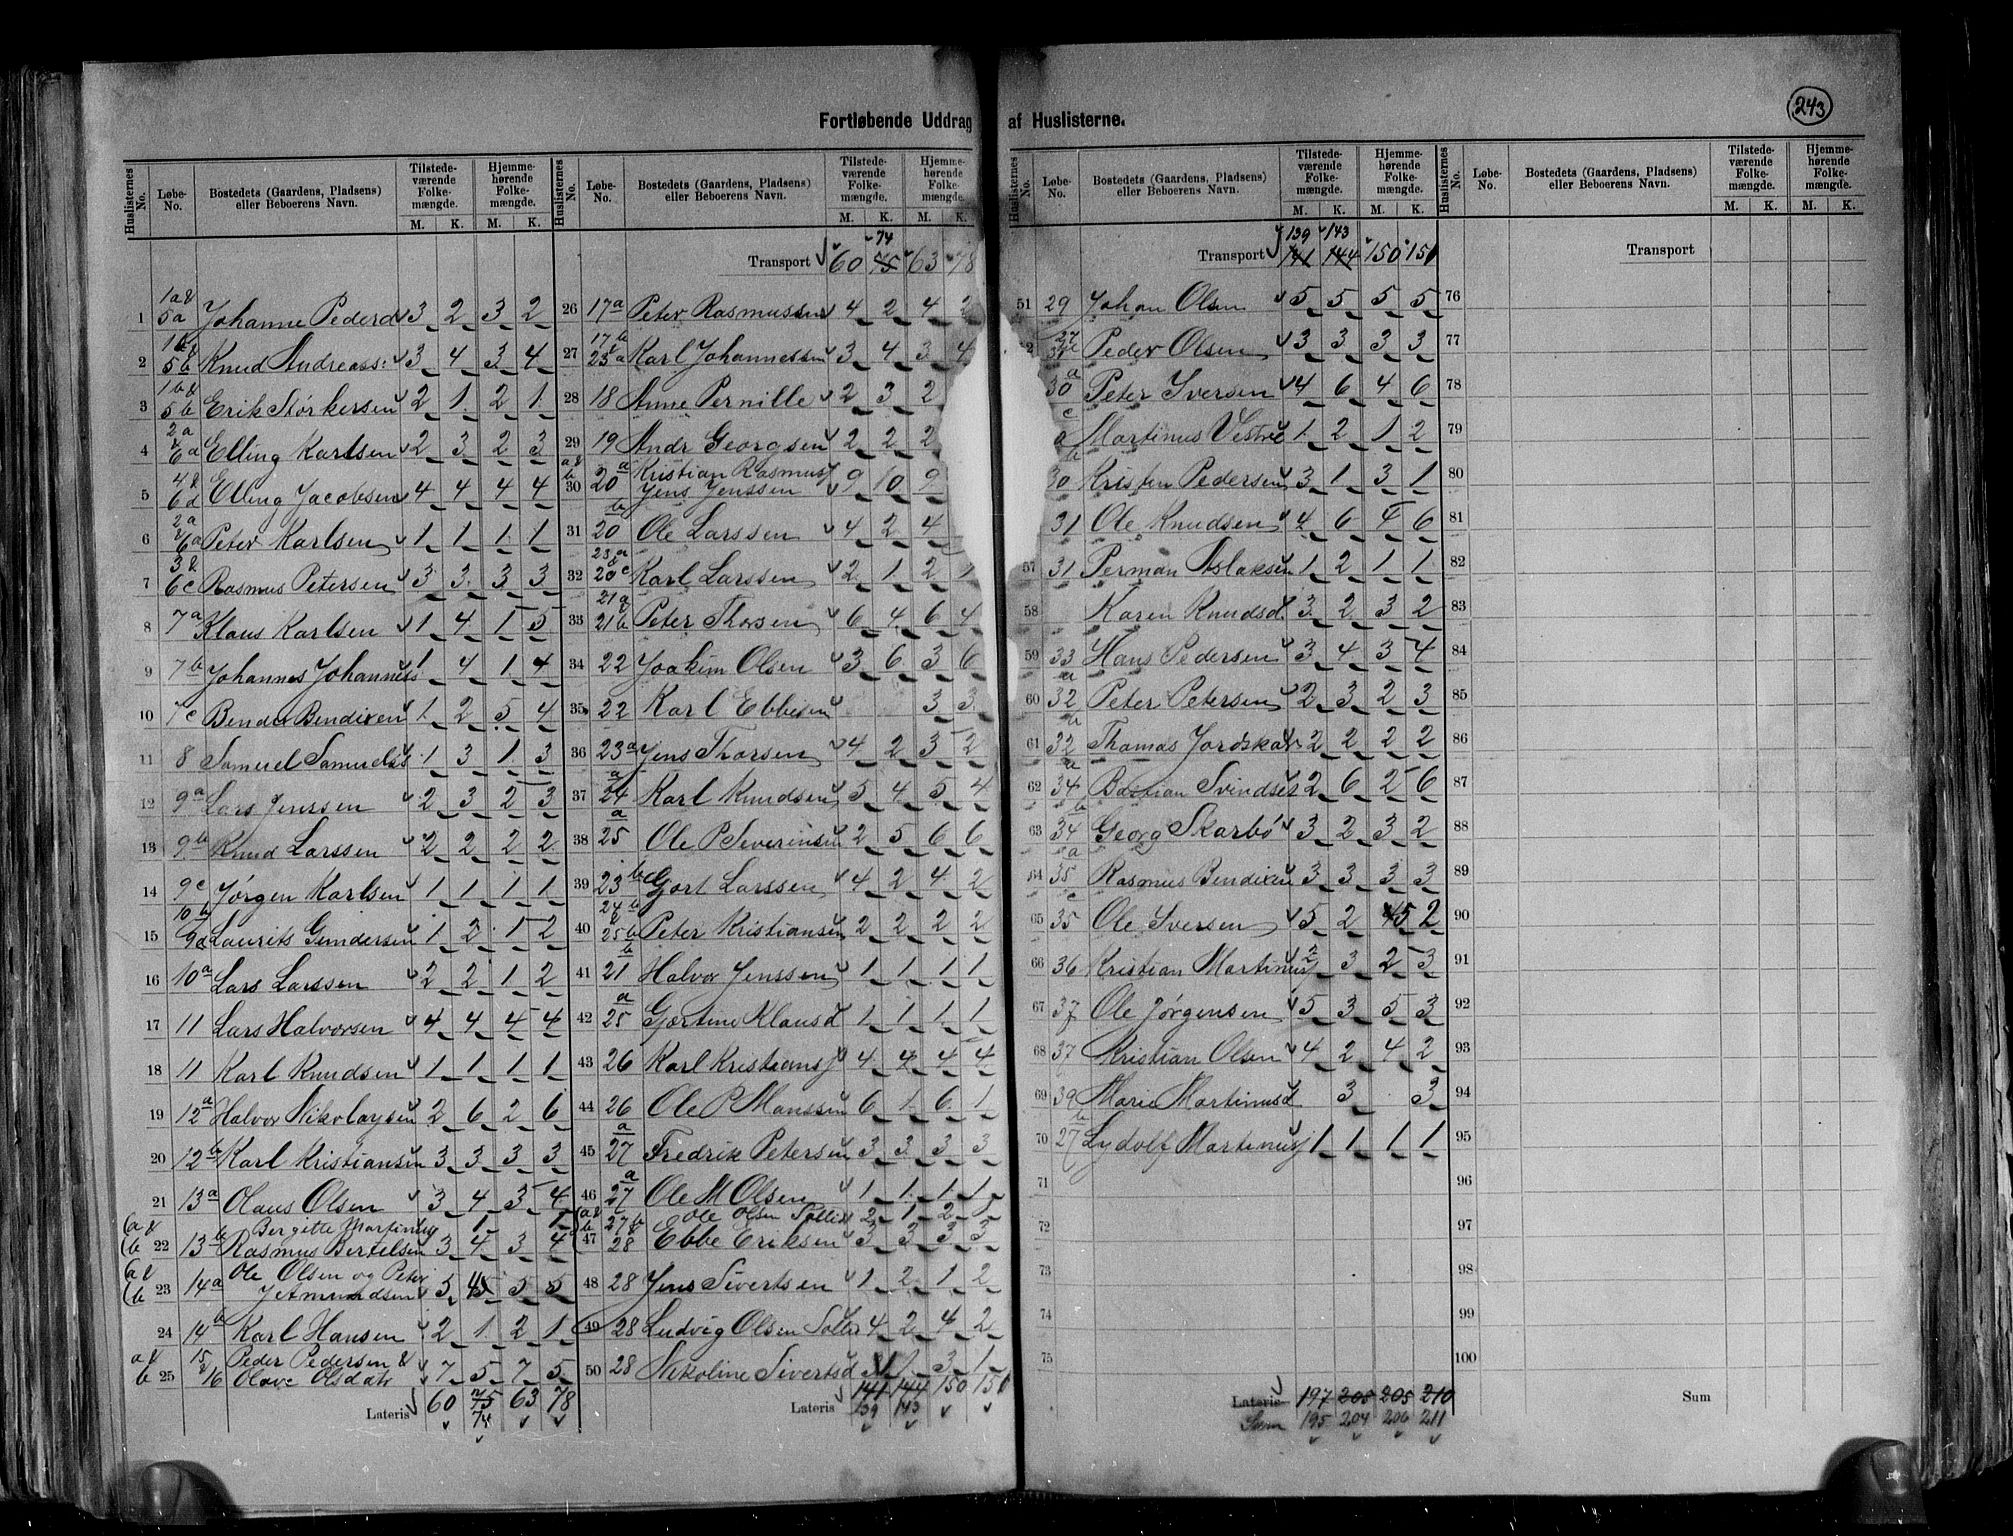 243
Fortløbende Uddrag af Huslisterne.
Huslisternes No. Løbe-No. Bostedets (Gaardens, Pladsens) eller Beboerens Navn. Tilstedeværende Folkemængde. M. K. Hjemmehørende Folkemængde. M. K.
Transport
1 1a & 5a Johanne Pedersd 3 2 3 2
2 5b Knud Andreass: 3 4 3 4
3 1b & 5b Erik Størkersen 2 1 2 1
4 2a & 6a Elling Karlsen 2 3 2 3
5 4 & 6d Elling Jacobsen 4 4 4 4
6 2a & 6a Peter Karlsen 1 1 1 1
7 3 & 6c Rasmus Petersen 3 3 3 3
8 7a Klaus Karlsen 1 4 1 5
9 7b Johannes Johannes 1 4 1 4
10 7c Bendix Bendixen 1 2 5 4
11 8 Samuel Samuels 1 3 1 3
12 9a Lars Jenssen 2 3 2 3
13 9b Knud Larssen 2 2 2 2
14 9c Jørgen Karlsen 1 1 1 1
15 10b 9d Laurits Gundersen 1 2 1 2
16 10a Lars Larssen 2 2 1 2
17 11 Lars Halvorsen 4 4 4 4
18 11 Karl Knudsen 1 1 1 1
19 12a Halvor Nikolaysen 2 6 2 6
20 12b Karl Kristiansen 3 3 3 3
21 13a Olaus Olsen 3 4 3 4
(a & Bergitte 1 1
(b 22 13b Rasmus Bertelsen 3 4 3 4
(a & Ole Olsen og Peter
(b 23 14a J Amundsen 5 5 5
24 14b Karl Hansen 2 1 2 1
a & 15 Peder Pedersen &
b 25 & 16 Olave Olsdatr 7 5 7 5
Lateris 60 75 63 78
74
74
Transport 60 75 63 78
26 17a Peter Rasmussen 4 2 4 2
27 17b & 23a Karl Johannessen 3 4 3 4
28 18 Anne Pernille 2 3 2
29 19 Andr Georgsen 2 2 2
a & a Kristian Rasmus
b 30 20 Jens Jenssen 9 10 9
31 20b Ole Larssen 4 2 4
32 23a & 20c Karl Larssen 2 1 2 1
33 21a & 21b Peter Thorsen 6 4 6 4
34 22 Joakim Olsen 3 6 3 6
35 22 Karl Ebbesen 3 3
36 23a Jens Thorsen 4 2 3 2
37 24a Karl Knudsen 5 4 5 4
38 25a Ole P Severinsen 2 5 6 6
39 23b Gjert Larssen 4 2 4 2
40 24b & 25b Peter Kristiansen 2 2 2 2
41 21b Halvor Jenssen 1 1 1 1
42 25a Gjertine Klausd 1 1 1 1
43 26 Karl Kristians 4 4 4 4
44 26 Ole P Manssen 6 1 6 1
45 27a Fredrik Petersen 3 3 3 3
46 27a Ole M Olsen 1 1 1 1
(a & 27b Ole Olsen 2 1 2 1
b 47 28 Ebbe Eriksen 3 3 3 3
48 28 Jens Sivertsen 1 2 1 2
49 28 Ludvig Olsen 4 2 4 2
50 28 Nikoline Sivertsd 1 3 1
Lateris 141 144 150 150
139 143
139 143
Transport 141 144 150 150
51 29 Johan Olsen 5 5 5 5
2 37 Peder Olsen 3 3 3 3
30a Peter Iversen 4 6 4 6
Martinus 1 2 1 2
30b Kristen Pedersen 3 1 3 1
31 Ole Knudsen 4 6 4 6
57 31 Perman Aslaksen 1 2 1 1
58 Karen Knudsd 3 2 3 2
59 33 Hans Pedersen 3 4 3 4
60 32a Peter Petersen 2 3 2 3
61 32b Thomas 2 2 2 2
62 34a Bastian Svindset 2 6 2 6
63 34b Georg Skarbø 3 2 3 2
64 35a Rasmus Bendixen 3 3 3 3
65 35c Ole Iversen 5 2 5 2
66 36 Kristian Martinus 2 3 2 3
67 37 Ole Jørgensen 5 3 5 3
68 37 Kristian Olsen 4 2 4 2
69 39 Marie Martinusd 3 3
70 27b Lydolf Martinus 1 1 1 1
71
72
73
74
75
Lateris 197 205 205 210
Sum 195 204 206 211
Transport
76
77
78
79
80
81
82
83
84
85
86
87
88
89
90
91
92
93
94
95
96
97
98
99
100
Sum